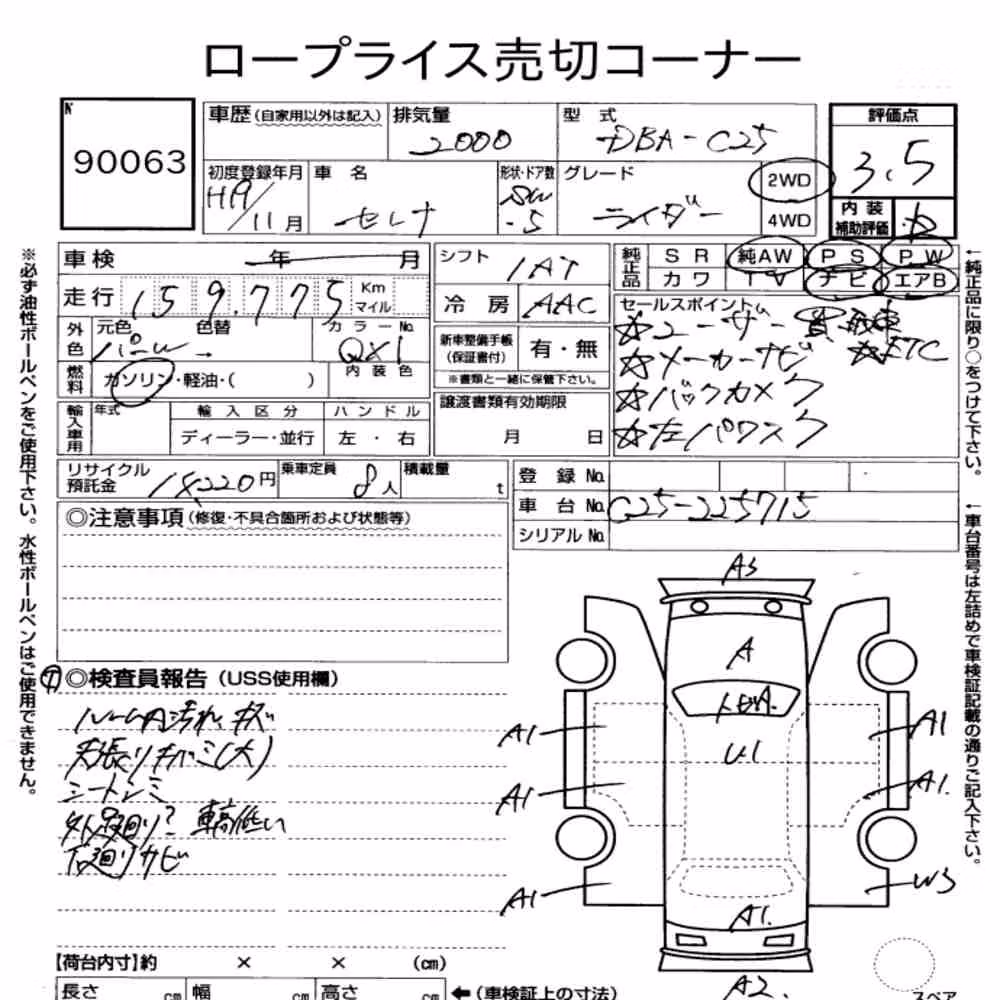 ロープライス売切コーナー
№
90063
車歴(自家用以外は記入) 排気量 2000
型式 DBA-C25
評価点
3.5
初度登録年月 H19/11月
車名 セレナ
形状・ドア数 SW -5
グレード ライダー
2WD
4WD
内装
補助評価
車検 年 月
シフト IAT
純正品
SR 純AW PS PW
カワ TV ナビ エアB
走行 159,775 Km
マイル
冷房 AAC
セールスポイント
☆ユーザー買取車
☆ETC
☆メーカーナビ
☆バックカメラ
☆左パワスラ
外色 元色 パール 色替
カラーNo. QX1
新車整備手帳
(保証書付)
有・無
※書類と一緒に保管下さい。
燃料 ガソリン・軽油・( )
内装色
譲渡書類有効期限
月 日
輸入車用 年式 輸入区分 ハンドル
ディーラー・並行 左・右
リサイクル
預託金 18220円
乗車定員 8人
積載量 t
登録No.
車台No. C25-225715
シリアルNo.
◎注意事項(修復・不具合箇所および状態等)
◎検査員報告(USS使用欄)
ルーム内汚れ、キズ
天張りキバミ(大)
シートシミ
外品廻り? 車高低い
下廻りサビ
A3
A
トビA.
U1
A1 A1
A1 A1.
A1 W3
A1.
A2
スペア
【荷台内寸】約 × × (cm)
長さ cm 幅 cm 高さ cm
←(車検証上の寸法)
※必ず油性ボールペンをご使用下さい。水性ボールペンはご使用できません。
←純正品に限り○をつけて下さい。
←車台番号は左詰めで車検証記載の通りご記入下さい。